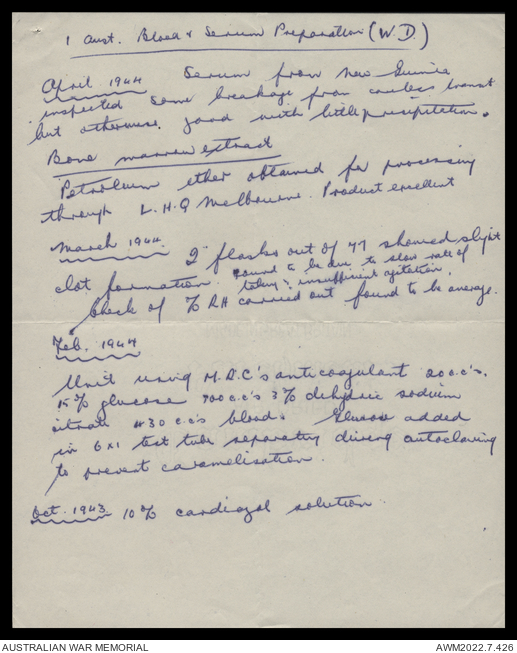 1 Aust. Blood & Serum Preparation (W.D)
April 1944 Serum from New Guinea
inspected some breakage from careless transit
but otherwise good with little precipitation.
Bone marrow extract
Petroleum ether obtained for processing
through L.H.Q Melbourne. Product excellent
March 1944. 2 flasks out of 47 showed slight
clot formation. found to be due to slow rate of
taking & insufficient agitation.
Check of % RH carried out found to be average.
Feb. 1944
Unit using M.R.C's anticoagulant 20 c.c's.
15% glucose 100 c.c's 3% dihydric sodium
citrate 430 c.c's blood. Glucose added
in 6x1 test tube separately during autoclaving
to prevent caramelisation.
Oct. 1943 10% cardiazol solution
AUSTRALIAN WAR MEMORIAL
AWM2022.7.426